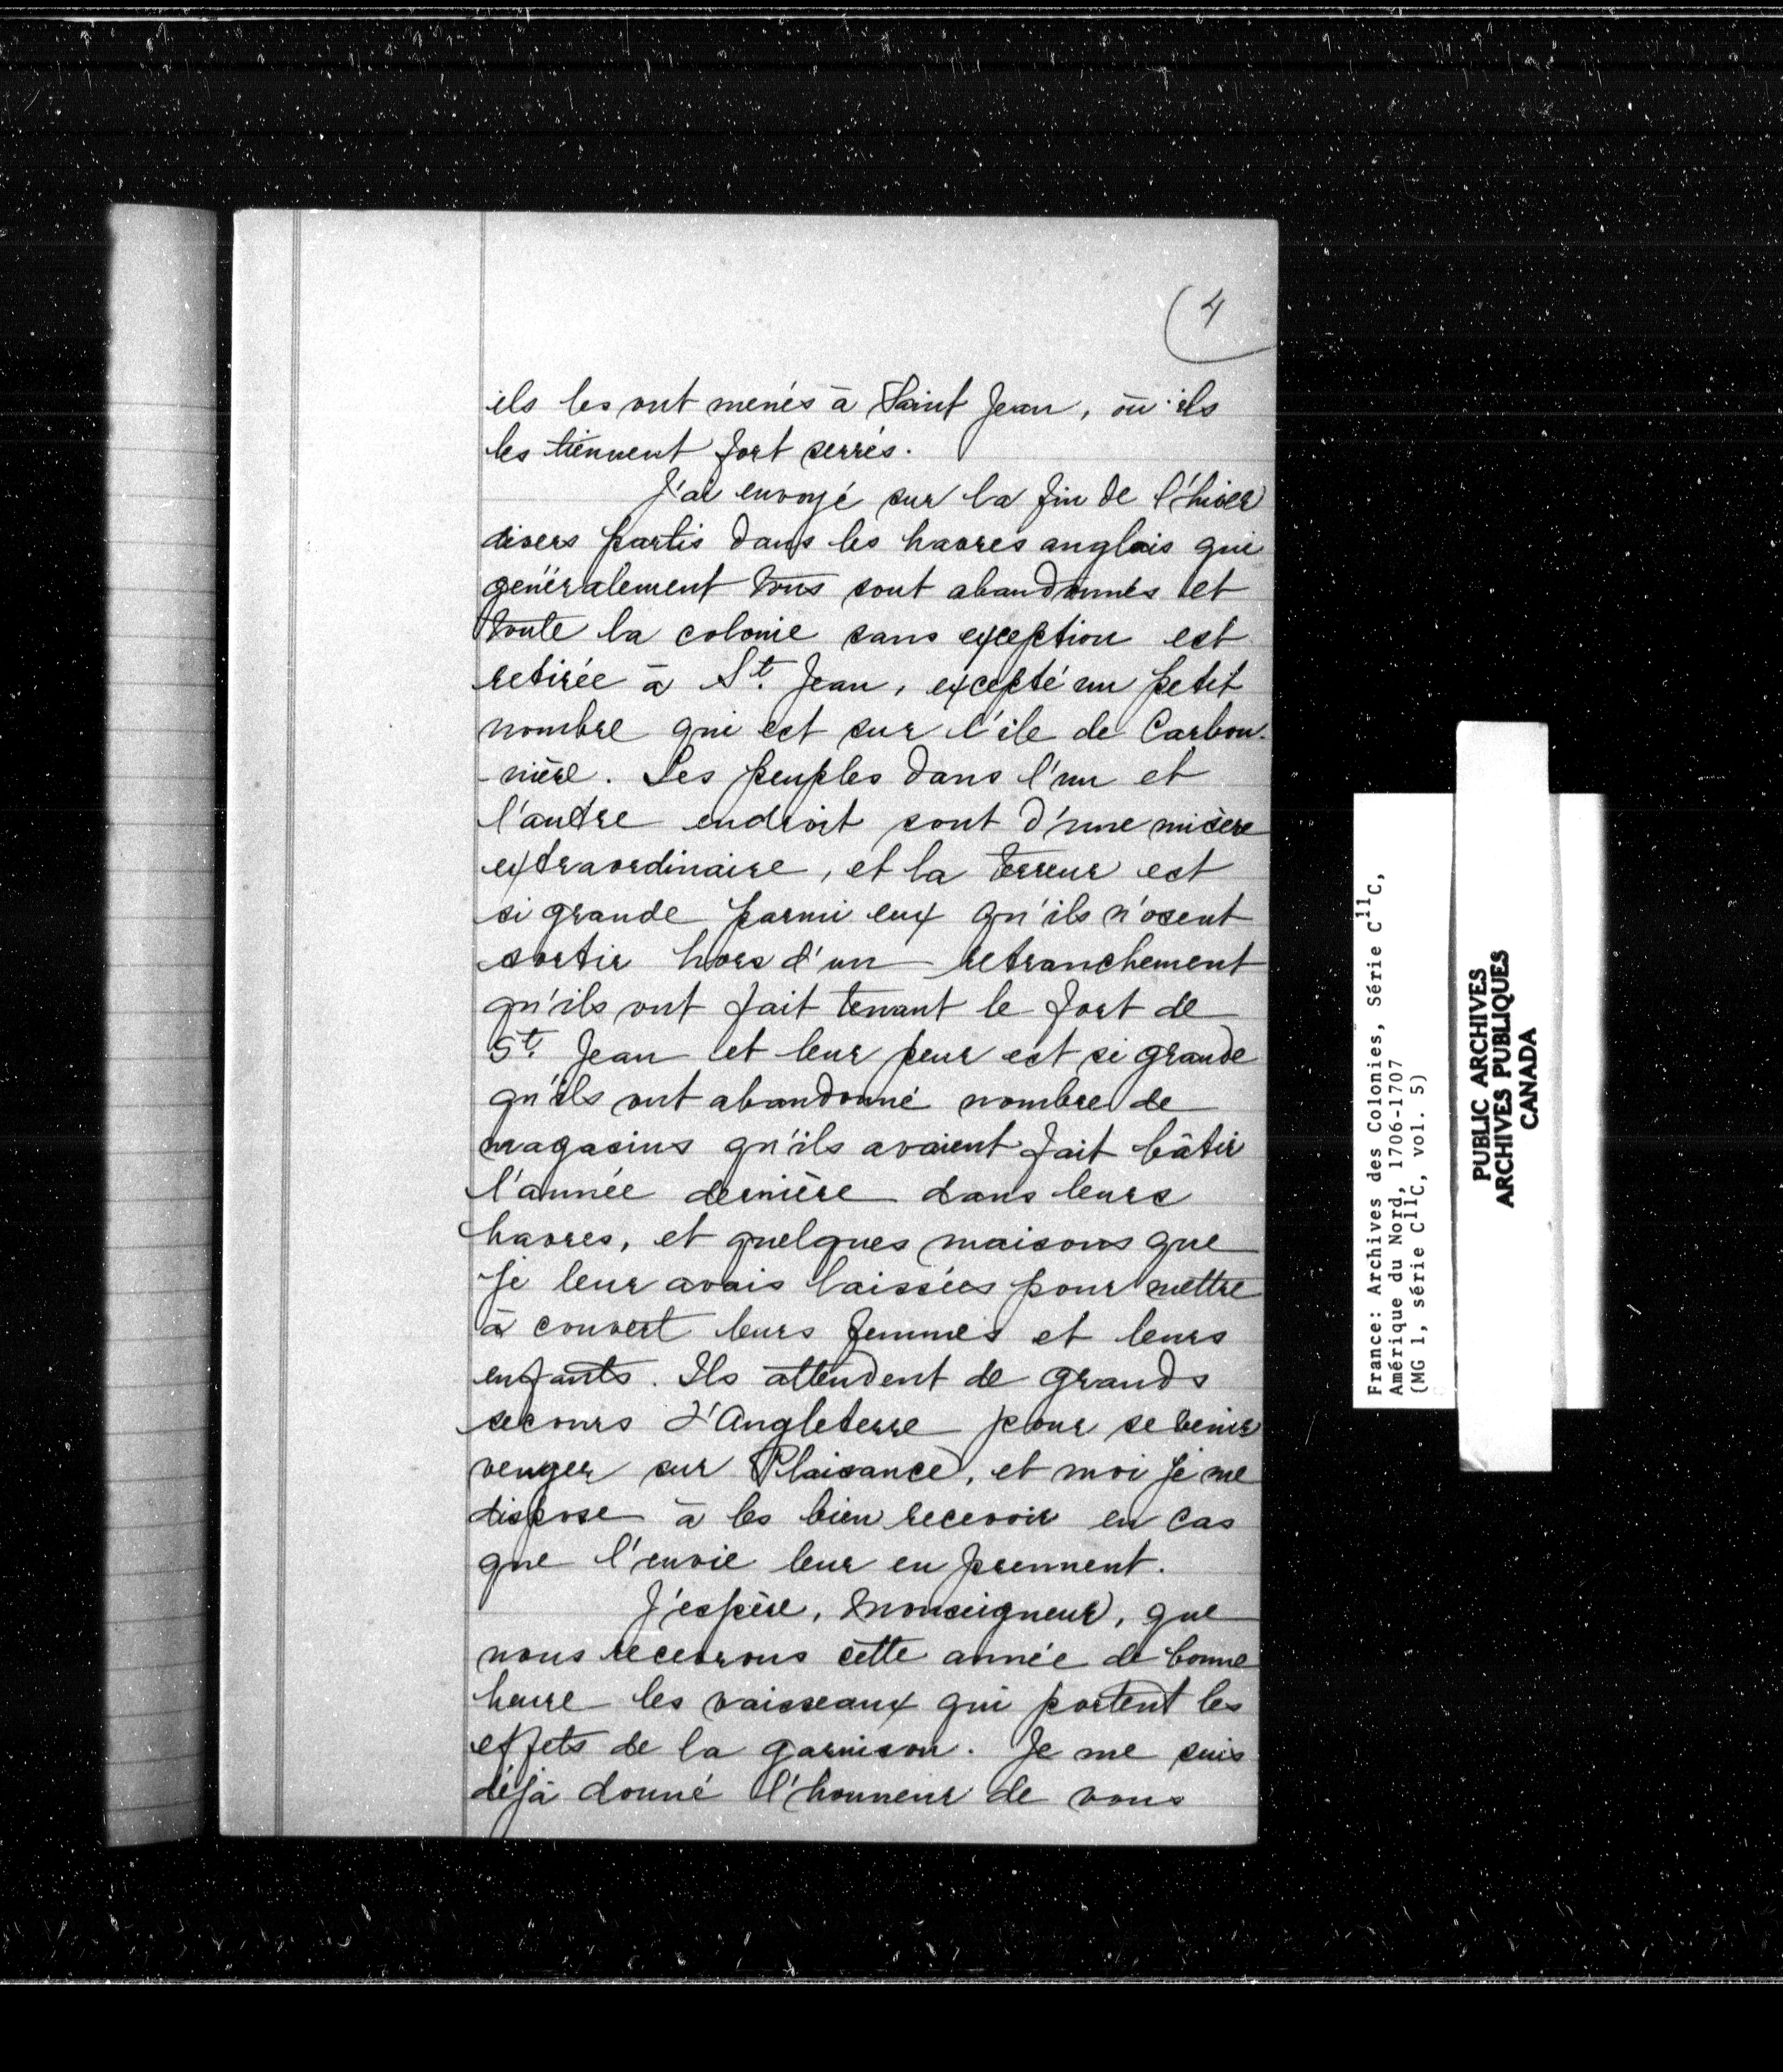 4
ils les ont menés à Saint Jean, où ils
les tiennent fort serrés.
J'ai envoyé sur la fin de l'hiver
divers partis dans les havres anglais qui
généralement tous sont abandonnés et
toute la colonie sans exception est
retirée à St. Jean, excepté un petit
nombre qui est sur l'île de Carbon-
-nière. Les peuples dans l'un et
l'autre endroit sont d'une misère
extraordinaire, et la terreur est
si grande parmi eux qu'ils n'osent
sortir hors d'un retranchement
qu'ils ont fait tenant le fort de
St. Jean et leur peur est si grande
qu'ils ont abandonné nombre de
magasins qu'ils avaient fait bâtir
l'année dernière dans leurs
havres, et quelques maisons que
je leur avais laissées pour mettre
à couvert leurs femmes et leurs
enfants. Ils attendent de grands
secours d'Angleterre pour se venir
venger sur Plaisance, et moi je me
dispose à les bien recevoir en cas
que l'envie leur en prennent.
J'espère, Monseigneur, que
nous recevrons cette année de bonne
heure les vaisseaux qui portent les
effets de la garnison. Je me suis
déjà donné l'honneur de vous
France: Archives des Colonies, Série C11C,
Amérique du Nord, 1706-1707
(MG 1, série C11C, vol. 5)
PUBLIC ARCHIVES
ARCHIVES PUBLIQUES
CANADA